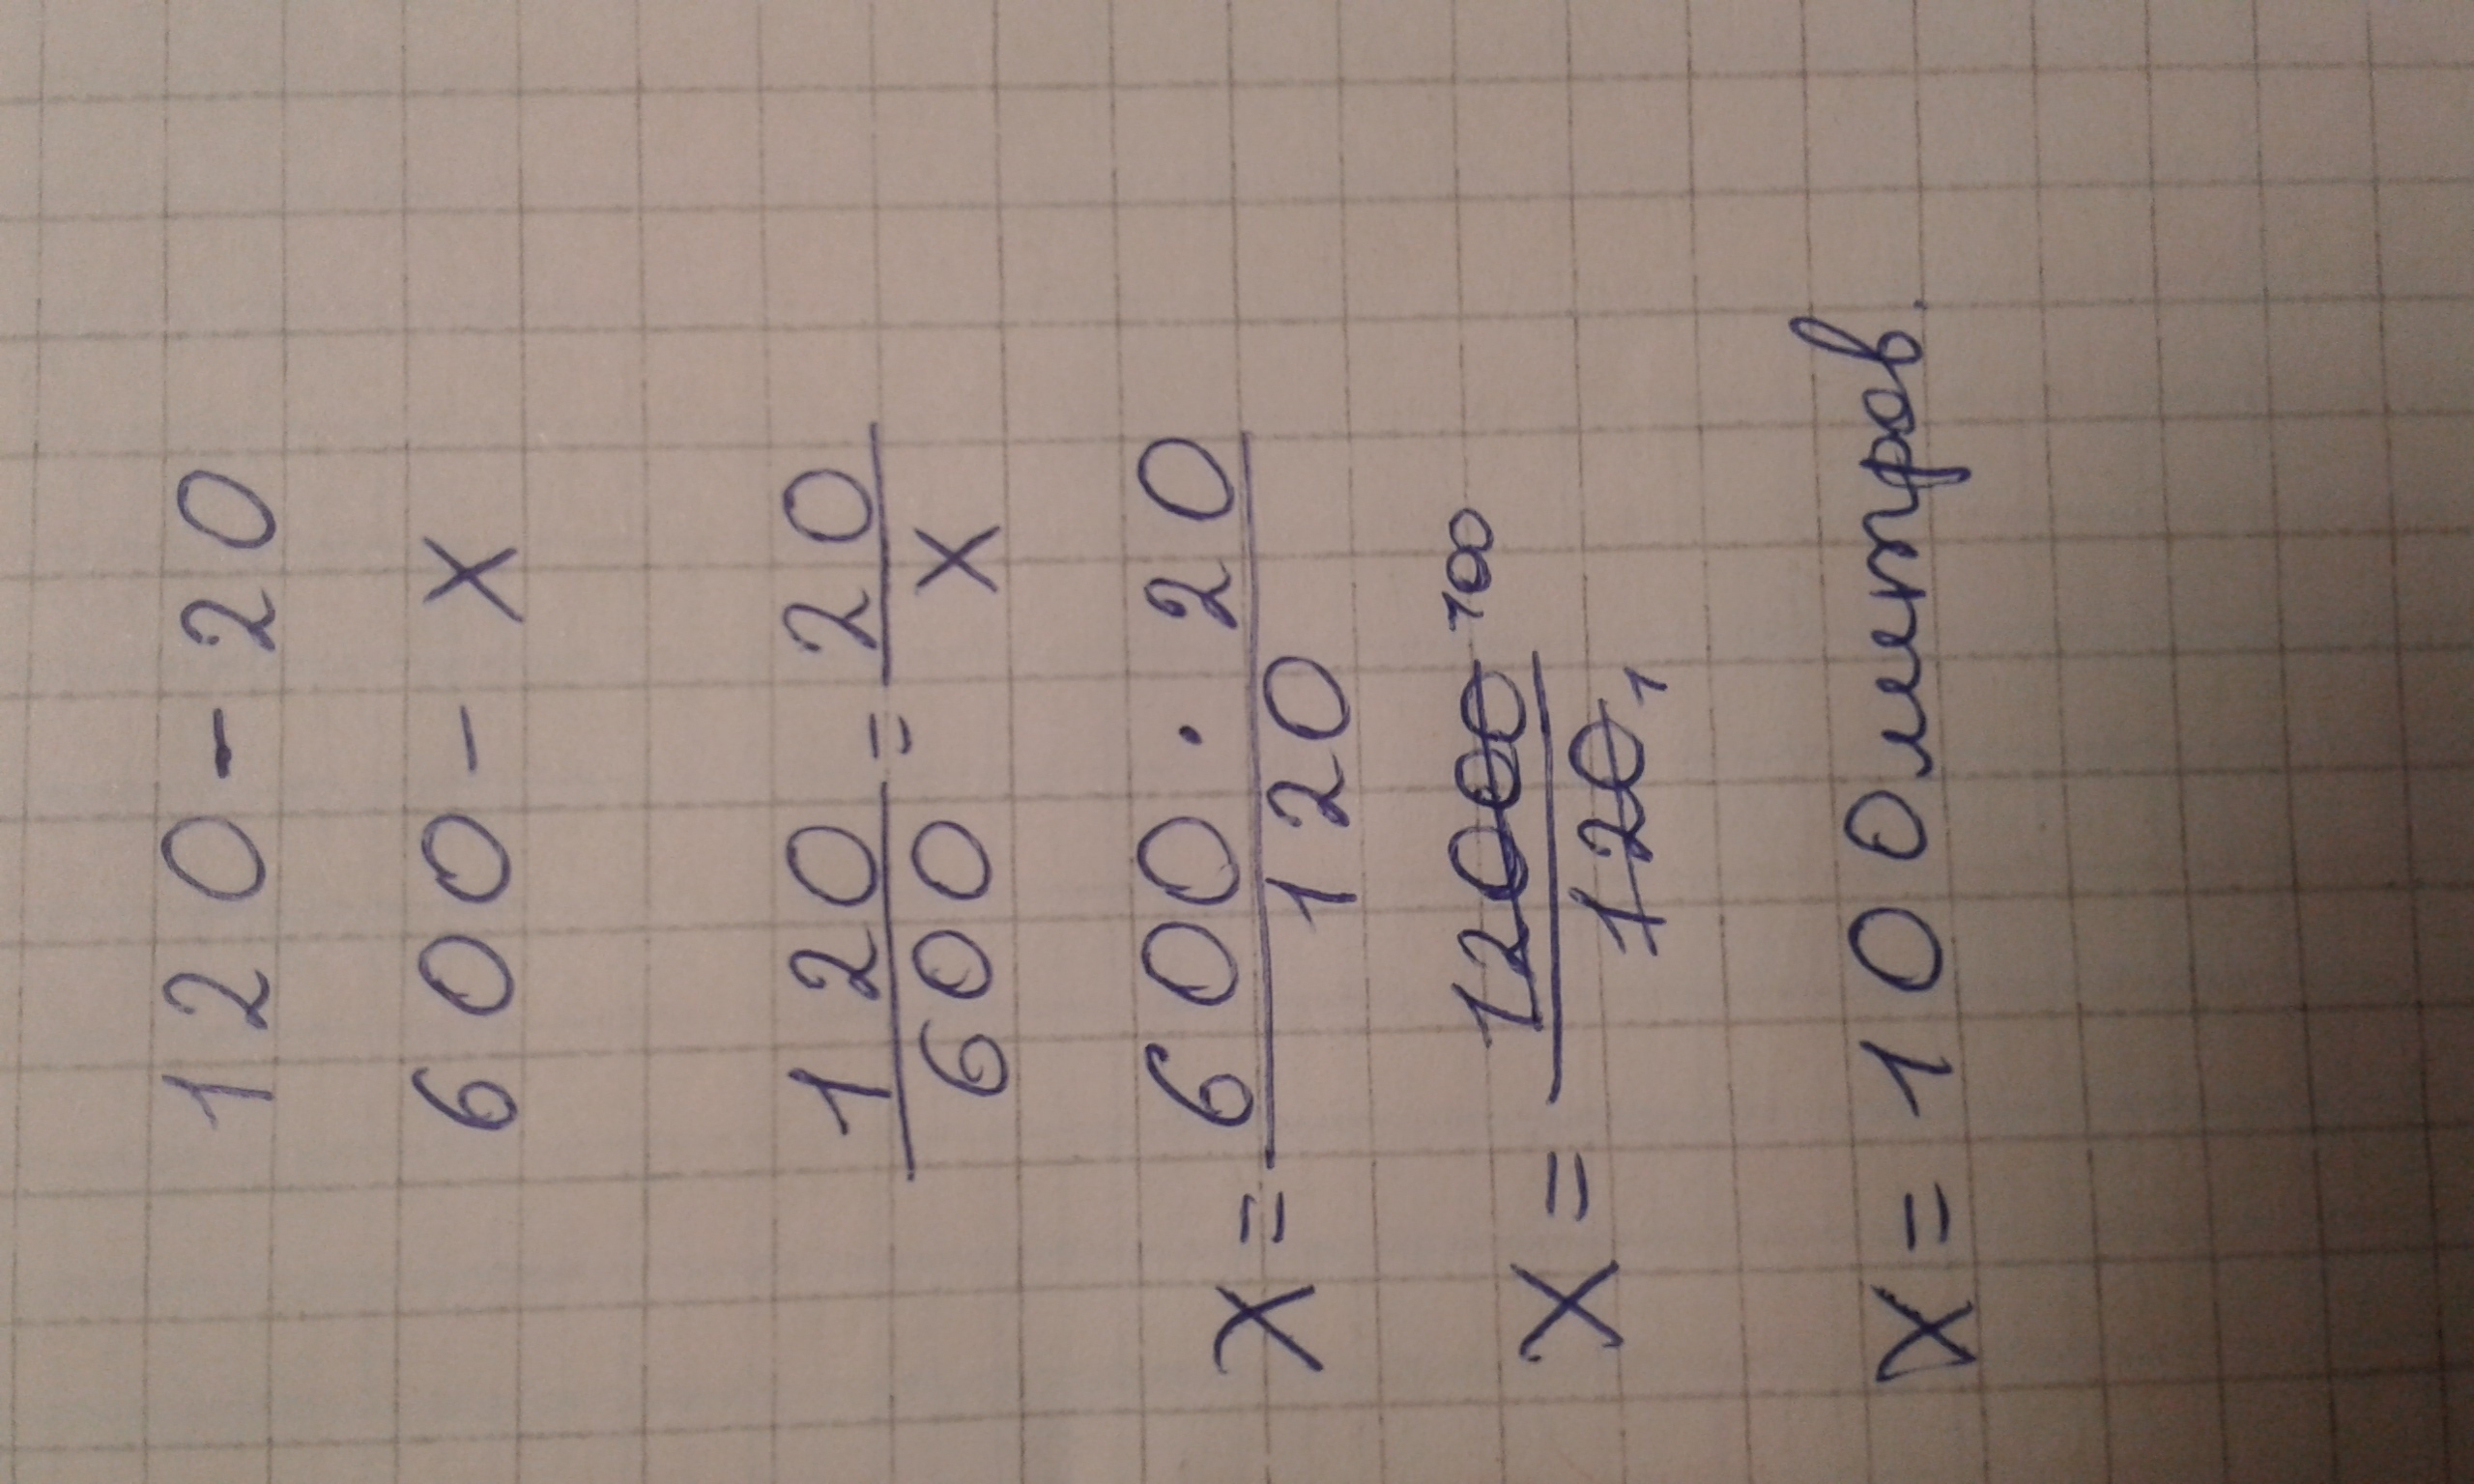 120 - 20
600 - х
120/600 = 20/х
х = 600 · 20/120
х = 12000 100/120 1
х = 100 литров.